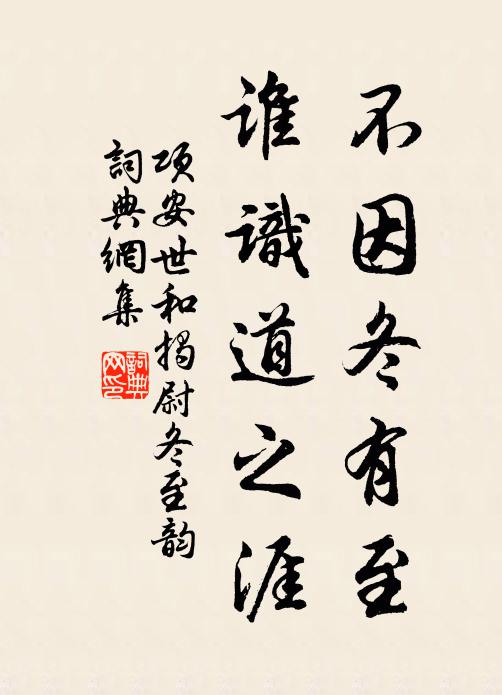 不因冬有至
誰識道之涯
项安世和揭尉冬至韵
詞典網集
詞典網印